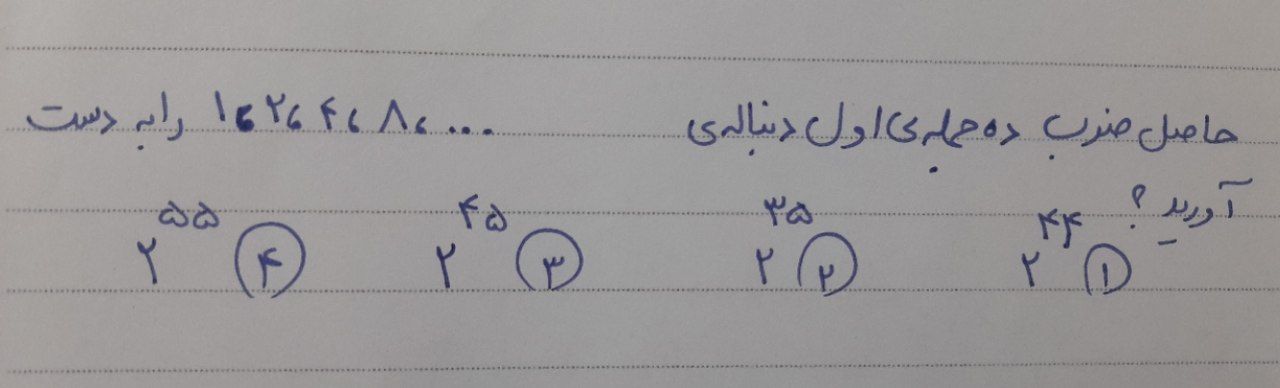 حاصل ضرب ده جمله‌ی اول دنباله‌ی ۱، ۲، ۴، ۸، ... را به دست
آورید؟
۱) ۲^۴۴ ۲) ۲^۳۵ ۳) ۲^۴۵ ۴) ۲^۵۵